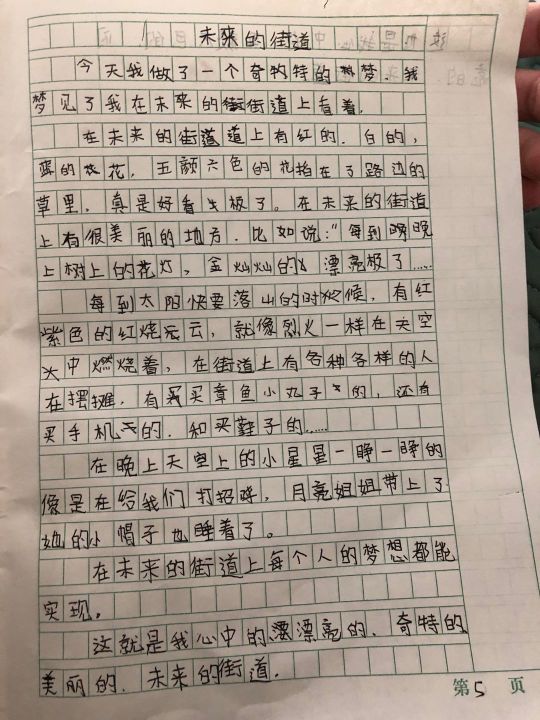 未来的街道
今天我做了一个奇特的梦.我
梦见了我在未来的街道上看着.
在未来的街道上有红的.白的,
蓝的花,五颜六色的花拍在了路边的
草里,真是好看失极了。在未来的街道
上有很美丽的地方.比如说:"每到晚晚
上树上的花灯,金灿灿的漂亮极了……
每到太阳快要落山的时候,有红
紫色的红烧云,就像烈火一样在天空
中燃烧着,在街道上有各种各样的人
在摆摊.有买章鱼小丸子的,还有
买手机的.和买鞋子的……
在晚上天空上的小星星一睁一睁的
像是在给我们打招呼,月亮姐姐带上了
她的小帽子也睡着了。
在未来的街道上每个人的梦想都能
实现。
这就是我心中的漂亮的、奇特的
美丽的.未来的街道.
第5页